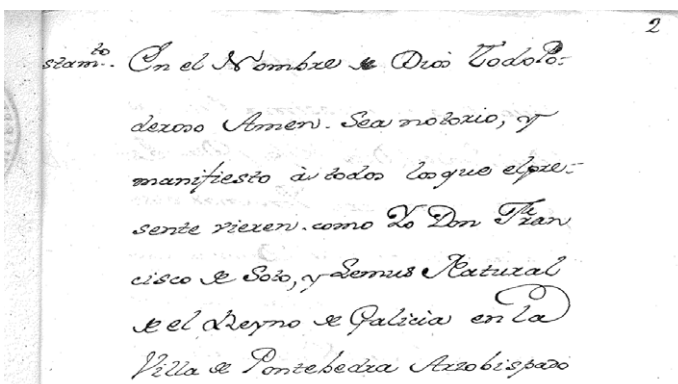 2
stam.to En el Nombre de Dios TodoPo-
deroso Amen. Sea notorio, y
manifiesto à todos los que el pre-
sente vieren. como Yo Don Fran
cisco de Soto, y Lemus Natural
de el Reyno de Galicia en la
Villa de Pontebedra Arzobispado